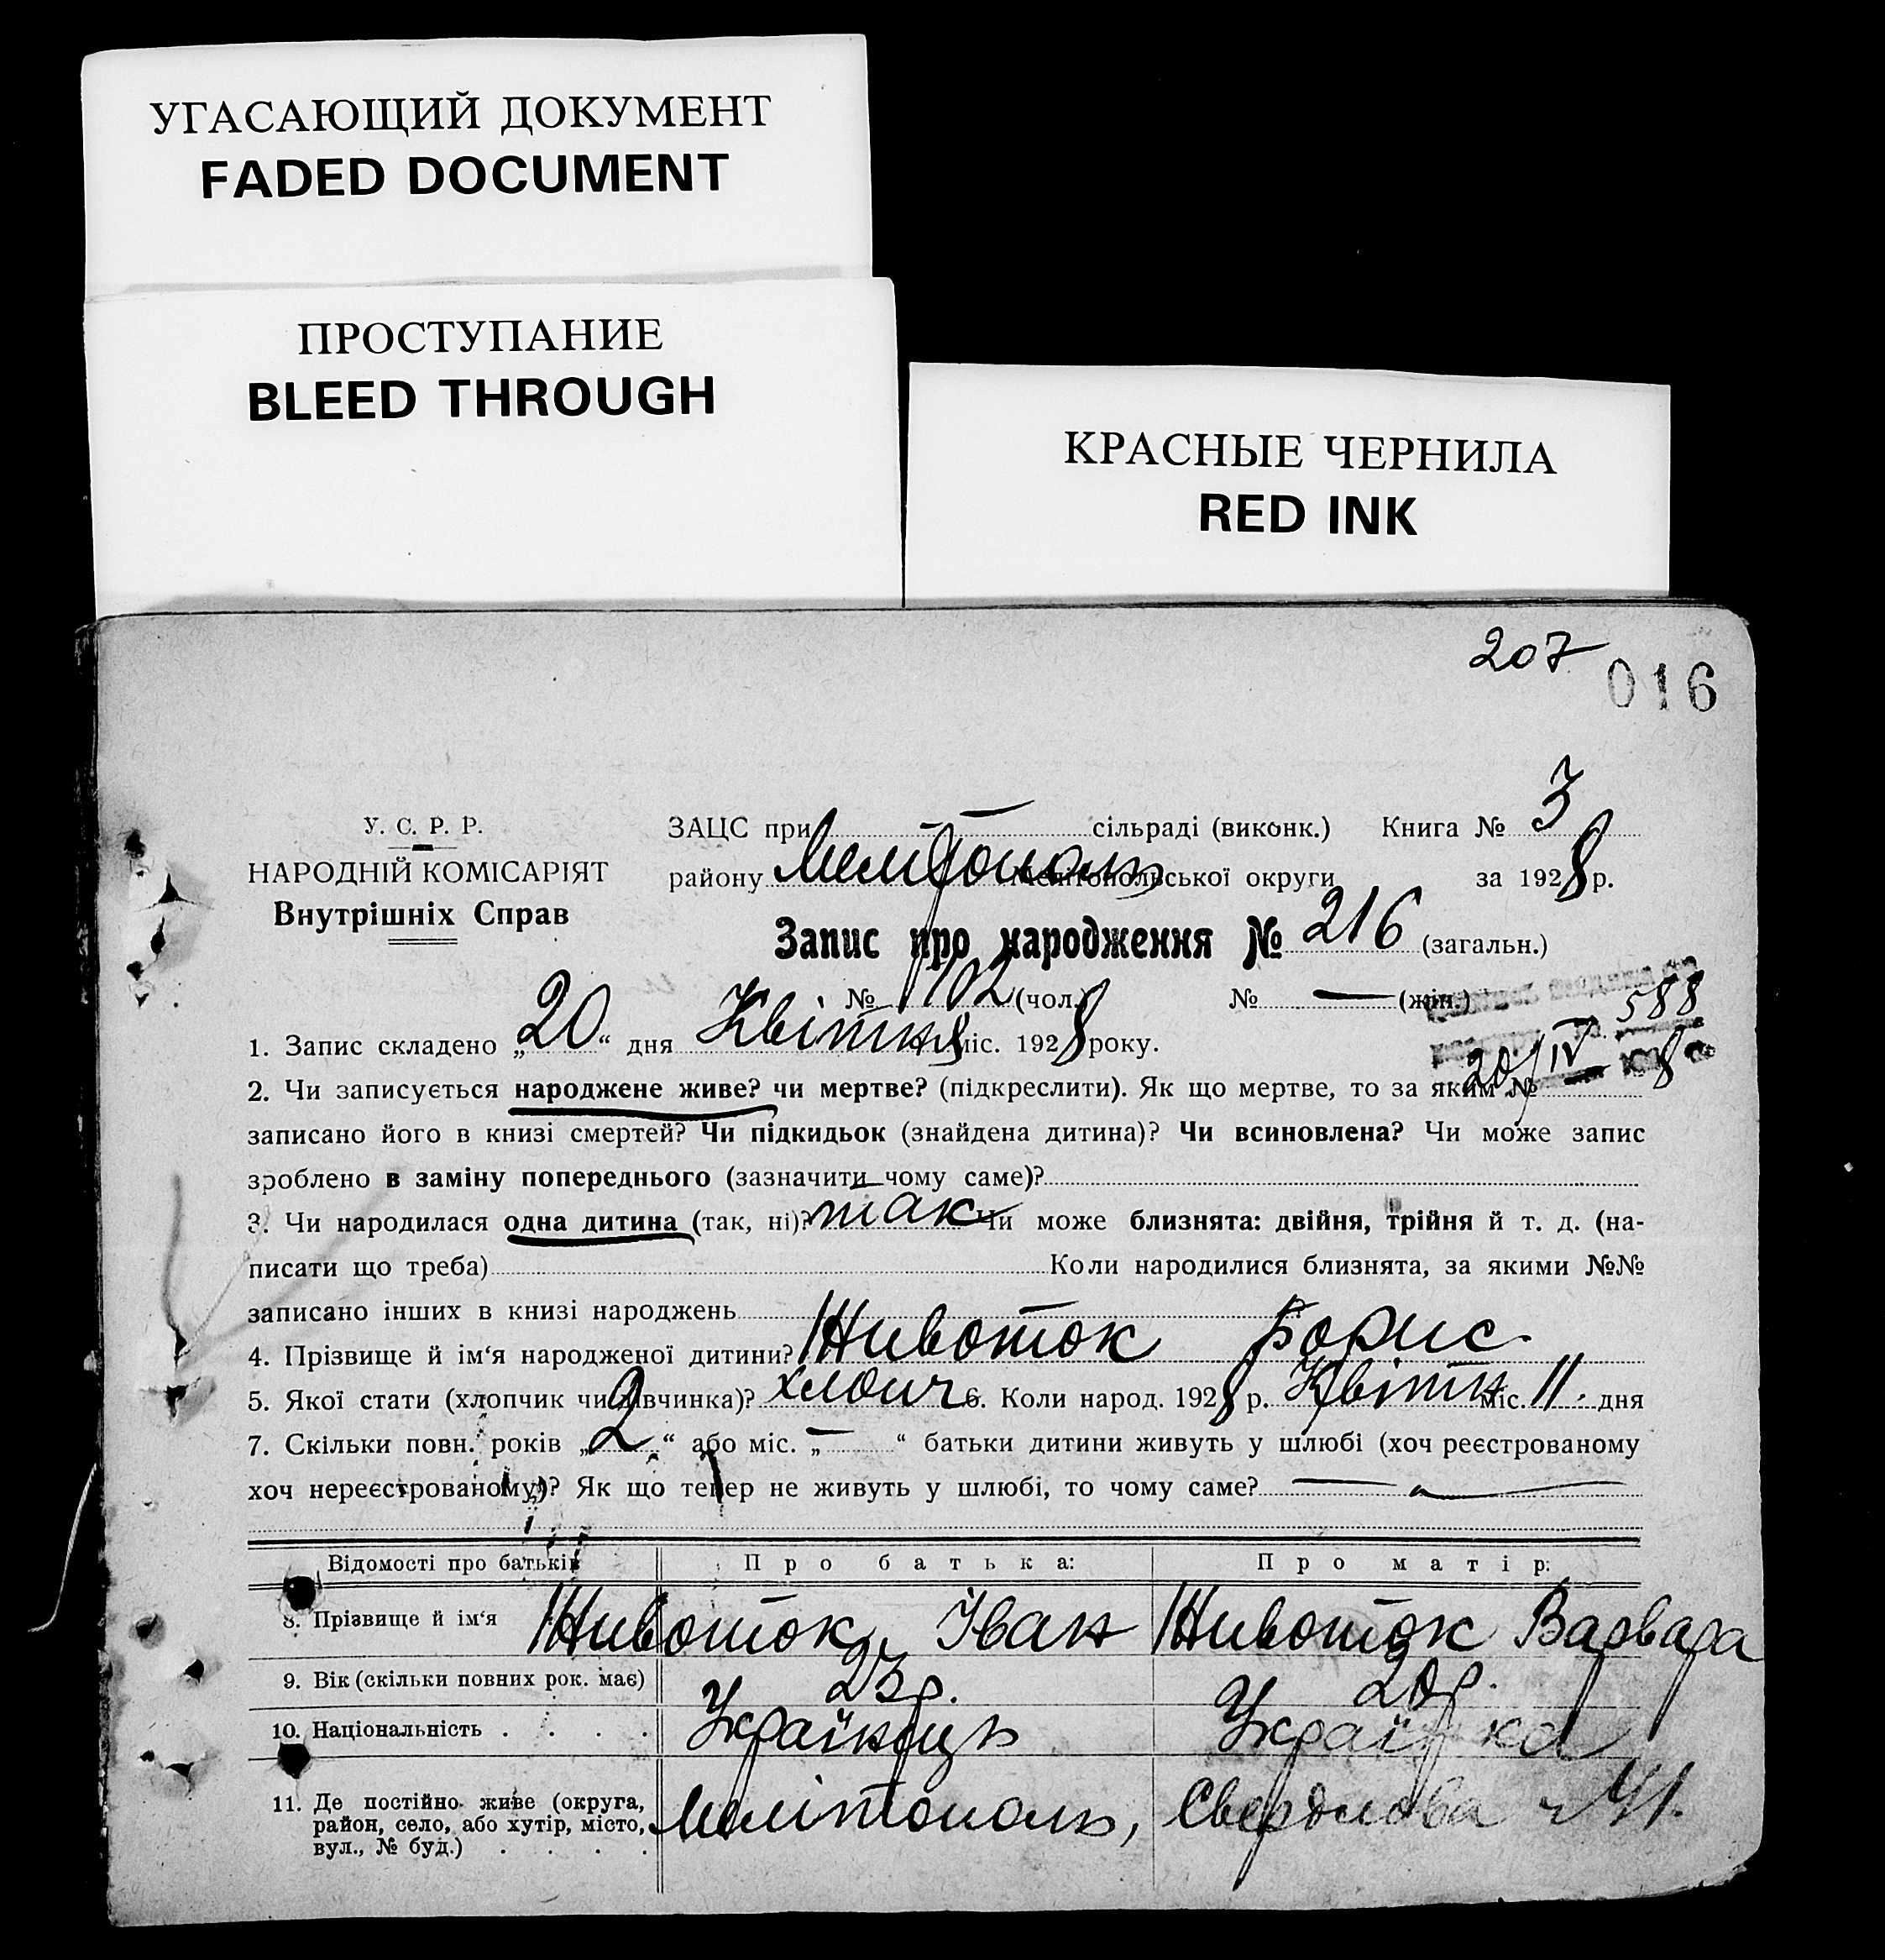 УГАСАЮЩИЙ ДОКУМЕНТ
FADED DOCUMENT
ПРОСТУПАНИЕ
BLEED THROUGH
КРАСНЫЕ ЧЕРНИЛА
RED INK
207
016
У. С. Р. Р.
НАРОДНІЙ КОМІСАРІЯТ
Внутрішніх Справ
ЗАЦС при — сільраді (виконк.) Книга № 3
району Мелітополь Мелітопольської округи за 1928 р.
Запис про народження № 216 (загальн.)
№ 102 (чол.) № — (жін.)
588
20/IV 8
1. Запис складено „20“ дня Квітня міс. 1928 року.
2. Чи записується народжене живе? чи мертве? (підкреслити). Як що мертве, то за яким №
записано його в книзі смертей? Чи підкидьок (знайдена дитина)? Чи всиновлена? Чи може запис
зроблено в заміну попереднього (зазначити чому саме)?
3. Чи народилася одна дитина (так, ні)? так Чи може близнята: двійня, трійня й т. д. (на-
писати що треба) Коли народилися близнята, за якими №№
записано інших в книзі народжень
4. Прізвище й ім‘я народженої дитини? Животок Борис
5. Якої стати (хлопчик чи дівчинка)? хлопч 6. Коли народ. 1928 р. Квітн міс. 11. дня
7. Скільки повн. років „2“ або міс. „—“ батьки дитини живуть у шлюбі (хоч реєстрованому
хоч нереєстрованому)? Як що тепер не живуть у шлюбі, то чому саме? —
Відомості про батьків Про батька: Про матір:
8. Прізвище й ім‘я Животок Іван Животок Варвара
9. Вік (скільки повних рок. має) 23р. 20р.
10. Національність . . . . Українець Українка
11. Де постійно живе (округа,
район, село, або хутір, місто,
вул., № буд.) . . . . Мелітополь, Свердлова 41.